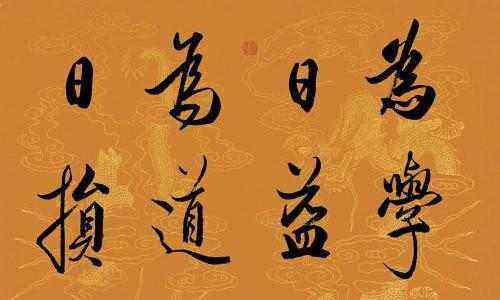 為學
日益
為道
日損